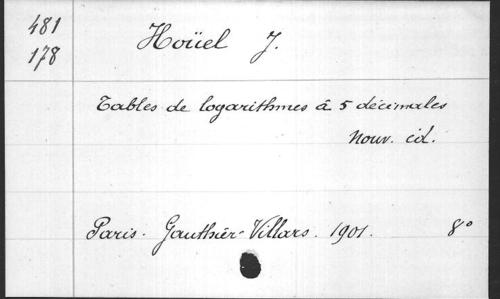 481
178
Hoüel J.
Tables de logarithmes à 5 décimales
Nouv. éd.
Paris. Gauthier-Villars. 1901. 8°